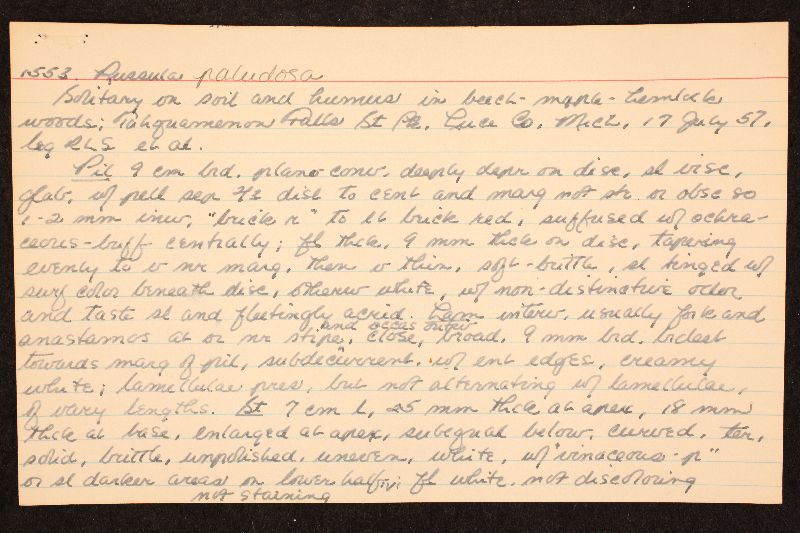 1553. Russula paludosa
Solitary on soil and humus in beech-maple-hemlock
woods; Tahquamenon Falls St Pk, Luce Co, Mich, 17 July 57,
leg RLS et al.
Pil 9 cm brd, plano-conv, deeply depr on disc, sl visc,
glab, w/ pell sep 2/3 dist to cent and marg not str or obsc so
1-2 mm inw, "brick r" to lt brick red, suffused w/ ochra-
ceous-buff centrally; fl thick, 9 mm thick on disc, tapering
evenly to v nr marg, then v thin, soft-brittle, sl tinged w/
surf color beneath disc, otherw white, w/ non-distinctive odor
and taste sl and fleetingly acrid. Lam interv, usually fork and
anastamos at or nr stipe, and occas outw close, broad, 9 mm brd, brdest
towards marg of pil, subdecurrent, w/ ent edges, creamy
white; lamellulae pres, but not alternating w/ lamellulae,
of vary lengths. St 7 cm l, 25 mm thick at apex, 18 mm
thick at base, enlarged at apex, subequal below, curved, ter,
solid, brittle, unpolished, uneven, white, w/ "vinaceous-p"
or sl darker areas on lower half; fl white, not discoloring
not staining